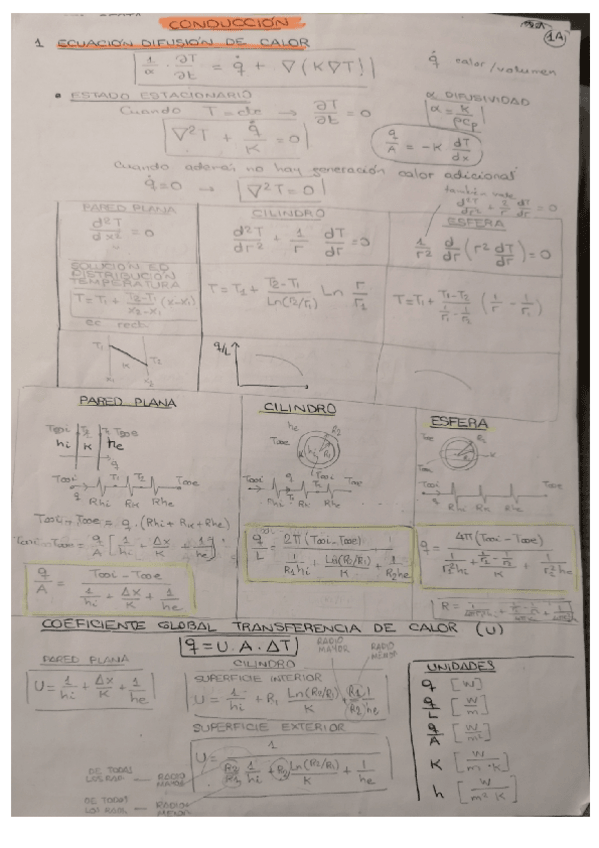 CONDUCCIÓN
1A
1 ECUACIÓN DIFUSIÓN DE CALOR
1/α · ∂T/∂t = q̇ + ∇(K∇T)
q̇ calor/volumen
• ESTADO ESTACIONARIO
Cuando T = cte → ∂T/∂t = 0
α DIFUSIVIDAD
α = K/ρCp
∇²T + q̇/K = 0
q/A = -K dT/dx
Cuando además no hay generación calor adicional
q̇ = 0 → ∇²T = 0
también vale
d²T/dr² + 2/r dT/dr = 0
PARED PLANA
CILINDRO
ESFERA
d²T/dx² = 0
d²T/dr² + 1/r dT/dr = 0
1/r² d/dr (r² dT/dr) = 0
SOLUCIÓN ED
DISTRIBUCIÓN
TEMPERATURA
T = T1 + T2-T1/x2-x1 (x-x1)
ec rect.
T = T1 + T2-T1/Ln(r2/r1) Ln r/r1
T = T1 + T1-T2/(1/r1 - 1/r2) (1/r - 1/r1)
T1 K T2
x1 x2
q/L
PARED PLANA
CILINDRO
ESFERA
T∞i T1 T2 T∞e
hi K he
q
T∞i T1 T2 T∞e
q Rhi Rk Rhe
T∞i - T∞e = q · (Rhi + Rk + Rhe)
T∞i - T∞e = q/A [1/hi + Δx/K + 1/he]
q/A = T∞i - T∞e / (1/hi + Δx/K + 1/he)
he
T∞e
hi R1 R2
T∞i q T1 T2 T∞e
Rhi Rk Rhe
q/L = 2π(T∞i - T∞e) / (1/R1hi + Ln(R2/R1)/K + 1/R2he)
T∞e
T∞i
K
T∞i T∞e
Rhi Rk Rhe
q = 4π(T∞i - T∞e) / (1/r1²hi + (1/r1 - 1/r2)/K + 1/r2²he)
COEFICIENTE GLOBAL TRANSFERENCIA DE CALOR (U)
q = U·A·ΔT
RADIO MAYOR
RADIO MENOR
PARED PLANA
U = 1/hi + Δx/K + 1/he
CILINDRO
SUPERFICIE INTERIOR
U = 1/hi + R1 Ln(R2/R1)/K + R1/R2 1/he
SUPERFICIE EXTERIOR
U = 1 / (R2/R1 1/hi + R2 Ln(R2/R1)/K + 1/he)
DE TODOS LOS RAD — RADIO MAYOR
DE TODOS LOS RAD. — RADIO MENOR
UNIDADES
q [W]
q/L [W/m]
q/A [W/m²]
K [W/m·K]
h [W/m²K]